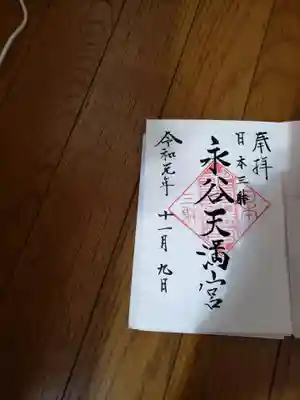 奉拝
日本三躰
永谷天満宮
令和元年 十一月 九日